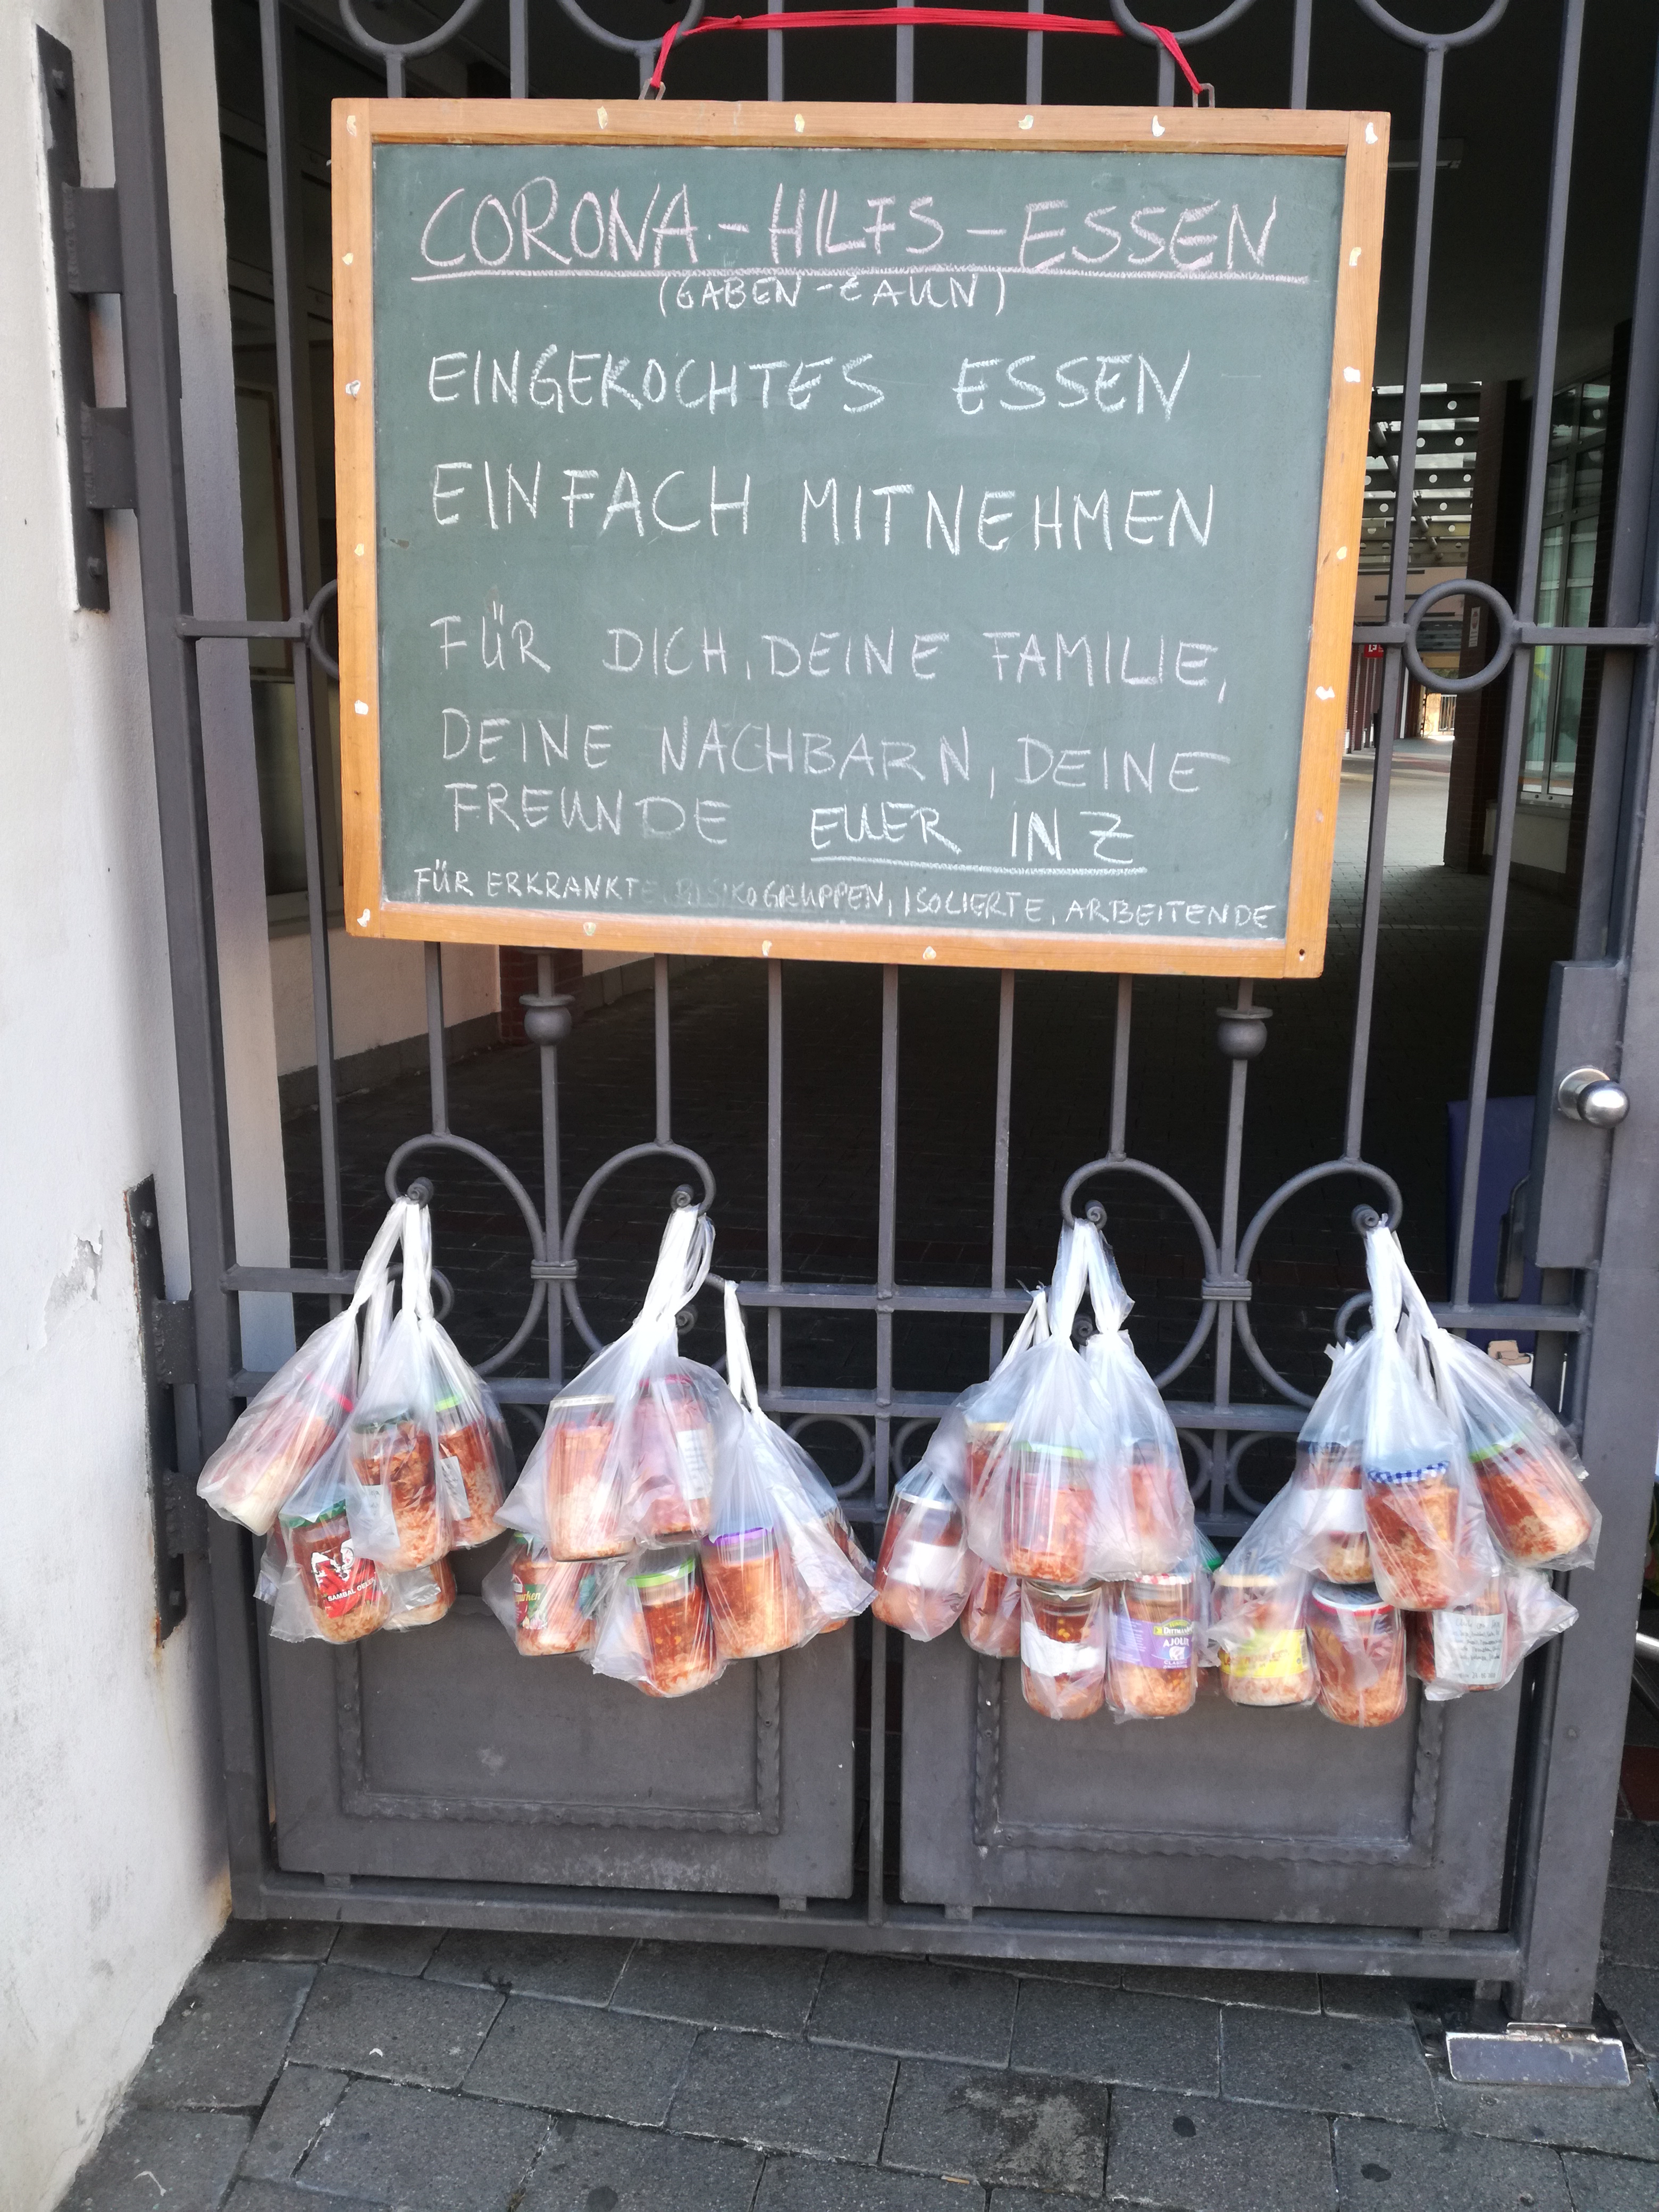 CORONA-HILFS-ESSEN
(GABEN-ZAUN)
EINGEKOCHTES ESSEN
EINFACH MITNEHMEN
FÜR DICH, DEINE FAMILIE,
DEINE NACHBARN, DEINE
FREUNDE EUER INZ
FÜR ERKRANKTE, RISIKOGRUPPEN, ISOLIERTE, ARBEITENDE
SAMBAL OELEK
AJOLI